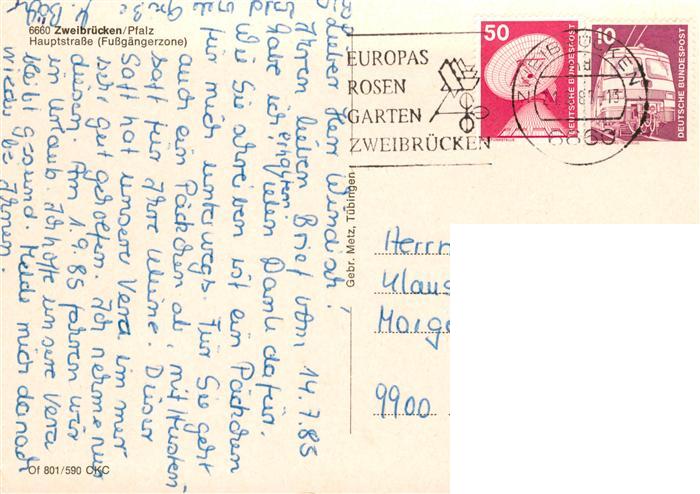 6660 Zweibrücken/Pfalz
Hauptstraße (Fußgängerzone)
Lieber Herr Windisch!
Ihren lieben Brief vom 14.7.85
habe ich erhalten
vielen Dank dafür.
Wie Sie schreiben ist ein Päckchen
für mich unterwegs. Für Sie geht
auch ein Päckchen ab, mit Husten-
saft für Ihre Kleine. Dieser
Saft hat unsere Vera immer
sehr gut geholfen. Ich nehme nur
diesen. Am 1.9.85 fahren wir
in Urlaub. Ich hoffe unsere Vera
bleibt gesund. Melde mich danach
wieder bei Ihnen.
Of 801/590 CKC
Gebr. Metz, Tübingen
EUROPAS
ROSEN
GARTEN
ZWEIBRÜCKEN
50
DEUTSCHE BUNDESPOST
10
DEUTSCHE BUNDESPOST
ZWEIBRÜCKEN
Herrn
Klaus
9900